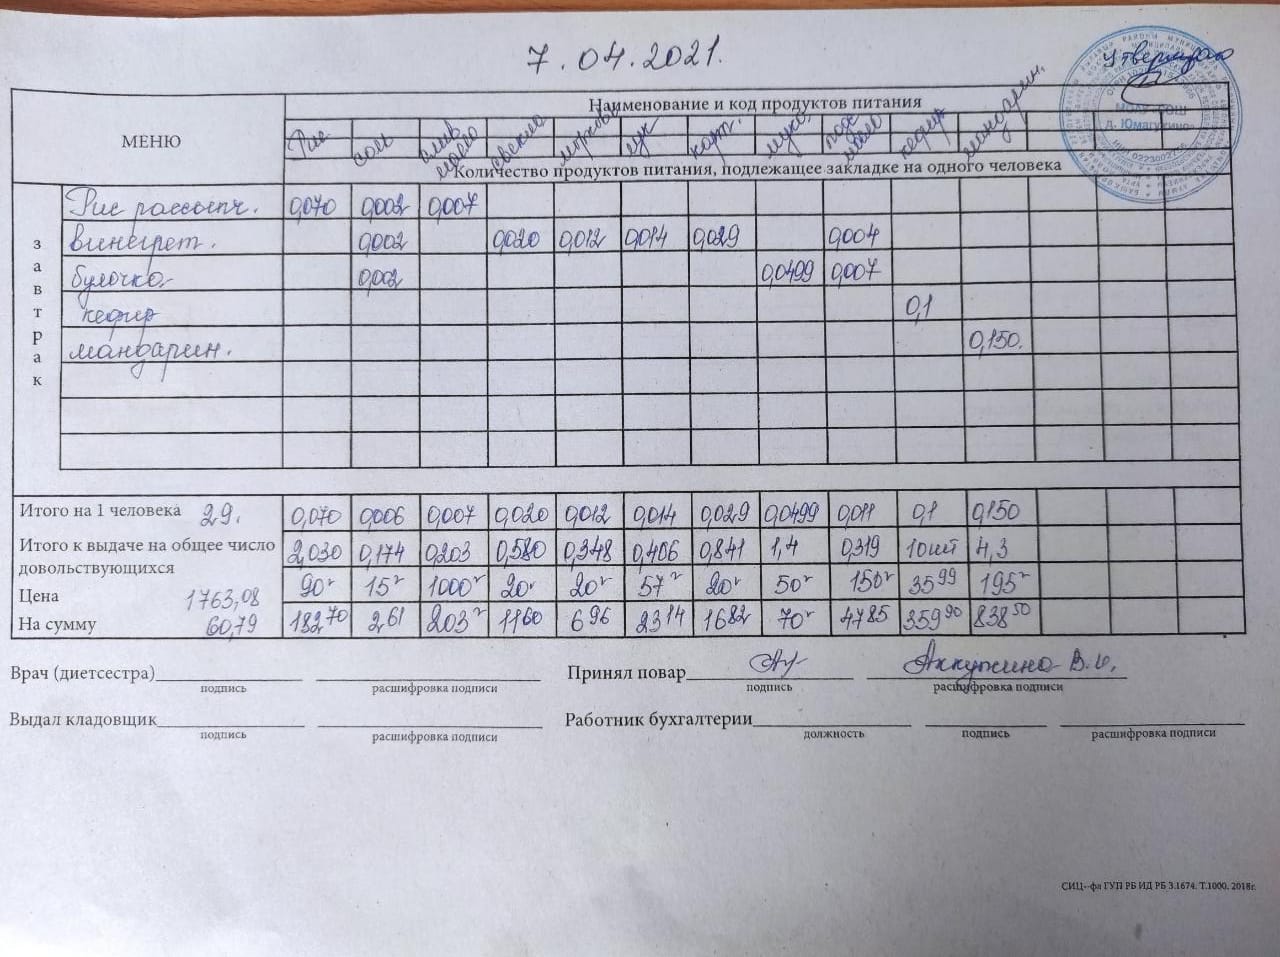 7.04.2021.
Утверждаю
МОАУ СОШ
д. Юмагужино
МЕНЮ
Наименование и код продуктов питания
Рис соль слив масло свекла морковь лук карт. мука подс масло кефир мандарин.
Количество продуктов питания, подлежащее закладке на одного человека
завтрак
Рис рассыпч. 0,070 0,002 0,007
винегрет. 0,002 0,020 0,012 0,014 0,029 0,004
булочка 0,002 0,0499 0,007
кефир 0,1
мандарин. 0,150.
Итого на 1 человека 29. 0,070 0,006 0,007 0,020 0,012 0,014 0,029 0,0499 0,011 0,1 0,150
Итого к выдаче на общее число довольствующихся 2,030 0,174 0,203 0,580 0,348 0,406 0,841 1,4 0,319 10шт 4,3
Цена 1763,08 90г 15г 1000г 20г 20г 57г 20г 50г 150г 35 99 195г
На сумму 60,79 182 70 2 61 203г 11 60 6 96 23 14 16 82 70г 47 85 359 90 838 50
Врач (диетсестра) Принял повар Аккужина В.И.
подпись расшифровка подписи подпись расшифровка подписи
Выдал кладовщик Работник бухгалтерии
подпись расшифровка подписи должность подпись расшифровка подписи
СИЦ--фл ГУП РБ ИД РБ 3.1674. Т.1000. 2018г.